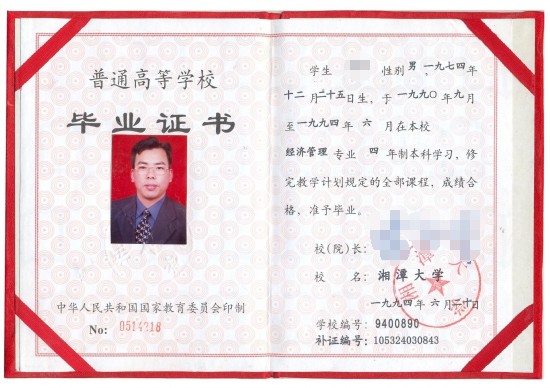 普通高等学校
毕业证书
中华人民共和国国家教育委员会印制
No: 0514218
学生 性别 男，一九七四年
十二月二十五日生，于一九九〇年九月
至一九九四年 六 月在本校
经济管理 专业 四 年制本科学习，修
完教学计划规定的全部课程，成绩合
格，准予毕业。
校(院)长：
校 名： 湘潭大学
一九九四年 六 月二十日
学校编号： 9400890
补证编号：105324030843
湘潭大学